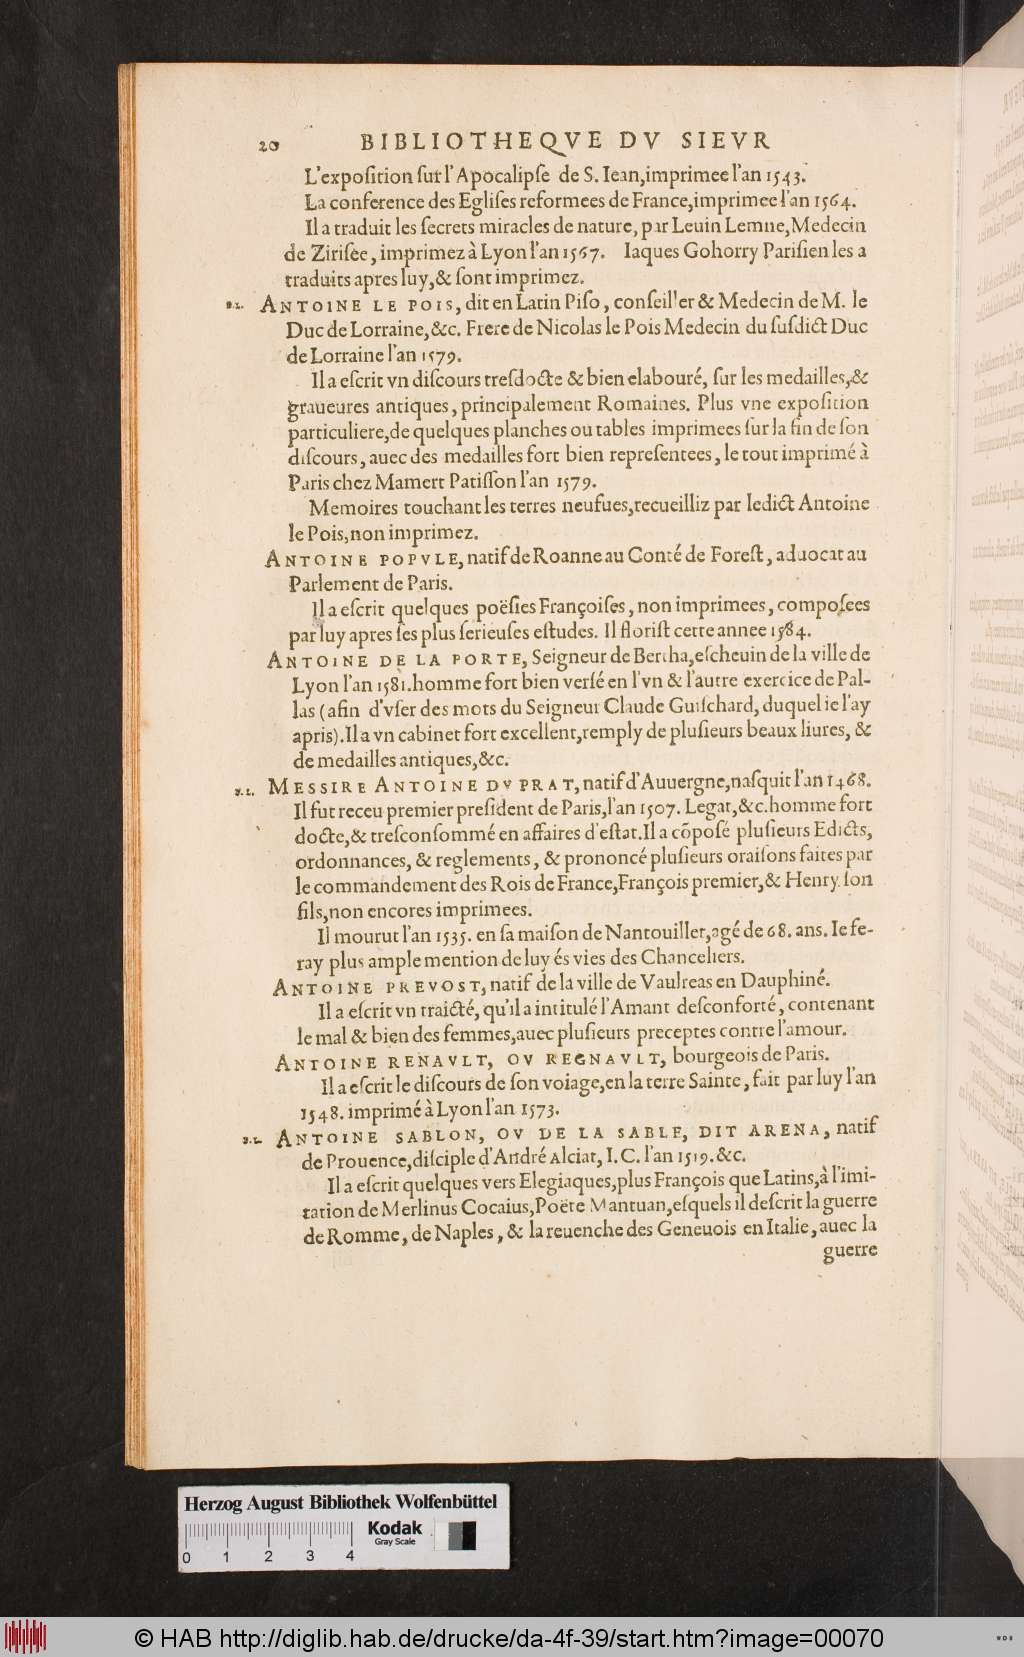 20 BIBLIOTHEQVE DV SIEVR
L'expoſition ſur l'Apocalipſe de S. Iean,imprimee l'an 1543.
La conference des Egliſes reformees de France,imprimee l'an 1564.
Il a traduit les ſecrets miracles de nature, par Leuin Lemne,Medecin
de Ziriſée, imprimez à Lyon l'an 1567. Iaques Gohorry Pariſien les a
traduits apres luy,& ſont imprimez.
ANTOINE LE POIS, dit en Latin Piſo, conſeiller & Medecin de M. le
Duc de Lorraine,&c. Frere de Nicolas le Pois Medecin du ſuſdict Duc
de Lorraine l'an 1579.
Il a eſcrit vn diſcours treſdocte & bien elabouré, ſur les medailles,&
graueures antiques, principalement Romaines. Plus vne expoſition
particuliere,de quelques planches ou tables imprimees ſur la fin de ſon
diſcours, auec des medailles fort bien repreſentees, le tout imprimé à
Paris chez Mamert Patiſſon l'an 1579.
Memoires touchant les terres neufues,recueilliz par ledict Antoine
le Pois,non imprimez.
ANTOINE POPVLE, natif de Roanne au Conté de Foreſt, aduocat au
Parlement de Paris.
Il a eſcrit quelques poëſies Françoiſes, non imprimees, compoſees
par luy apres ſes plus ſerieuſes eſtudes. Il floriſt cette annee 1584.
ANTOINE DE LA PORTE, Seigneur de Bertha,eſcheuin de la ville de
Lyon l'an 1581.homme fort bien verſé en l'vn & l'autre exercice de Pal-
las (afin d'vſer des mots du Seigneur Claude Guiſchard, duquel ie l'ay
apris).Il a vn cabinet fort excellent,remply de pluſieurs beaux liures, &
de medailles antiques,&c.
MESSIRE ANTOINE DV PRAT, natif d'Auuergne,naſquit l'an 1468.
Il fut receu premier preſident de Paris,l'an 1507. Legat,&c.homme fort
docte,& treſconſommé en affaires d'eſtat.Il a cōpoſé pluſieurs Edicts,
ordonnances, & reglements, & prononcé pluſieurs oraiſons faites par
le commandement des Rois de France,François premier,& Henry ſon
fils,non encores imprimees.
Il mourut l'an 1535. en ſa maiſon de Nantouillet,agé de 68. ans. Ie fe-
ray plus ample mention de luy és vies des Chanceliers.
ANTOINE PREVOST, natif de la ville de Vaulreas en Dauphiné.
Il a eſcrit vn traicté, qu'il a intitulé l'Amant deſconforté, contenant
le mal & bien des femmes,auec pluſieurs preceptes contre l'amour.
ANTOINE RENAVLT, OV REGNAVLT, bourgeois de Paris.
Il a eſcrit le diſcours de ſon voiage,en la terre Sainte, fait par luy l'an
1548. imprimé à Lyon l'an 1573.
ANTOINE SABLON, OV DE LA SABLE, DIT ARENA, natif
de Prouence,diſciple d'André Alciat, I.C. l'an 1519.&c.
Il a eſcrit quelques vers Elegiaques,plus François que Latins,à l'imi-
tation de Merlinus Cocaius,Poëte Mantuan,eſquels il deſcrit la guerre
de Romme, de Naples, & la reuenche des Geneuois en Italie, auec la
guerre
Herzog August Bibliothek Wolfenbüttel
Kodak
Gray Scale
0 1 2 3 4
© HAB http://diglib.hab.de/drucke/da-4f-39/start.htm?image=00070